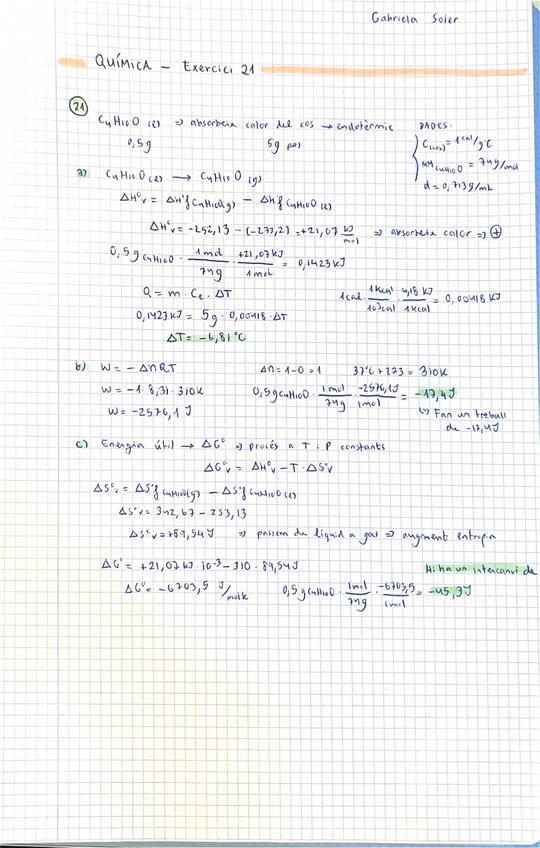 Gabriela Soler
QUÍMICA - Exercici 21
21
C4H10O (l) => absorbeix calor del cos → endotèrmic
0,5g 5g pes
DADES:
Ce(cos) = 1 cal/g°C
MM C4H10O = 74g/mol
d = 0,713g/mL
a) C4H10O (l) → C4H10O (g)
ΔH°v = ΔH°f C4H10O(g) - ΔH°f C4H10O (l)
ΔH°v = -252,13 - (-273,2) = +21,07 kJ/mol => absorbeix calor => (+)
0,5g C4H10O · 1mol/74g · +21,07kJ/1mol = 0,1423kJ
Q = m · Ce · ΔT
1cal · 1kcal/10³cal · 4,18 kJ/1kcal = 0,00418 kJ
0,1423kJ = 5g · 0,00418 · ΔT
ΔT = -6,81°C
b) W = - Δn R T Δn = 1-0 = 1 37°C + 273 = 310K
W = -1 · 8,31 · 310K 0,5g C4H10O · 1mol/74g · -2576,1J/1mol = -17,4J
W = -2576,1 J
↳ Fan un treball
de -17,4J
c) Energia útil → ΔG° => procés a T i P constants
ΔG°v = ΔH°v - T · ΔS°v
ΔS°v = ΔS°f C4H10O(g) - ΔS°f C4H10O (l)
ΔS°v = 342,67 - 253,13
ΔS°v = +89,54J => passem de líquid a gas => augment entropia
ΔG° = +21,07 kJ · 10⁻³ - 310 · 89,54J
Hi ha un intercanvi de
ΔG° = -6703,5 J/molk 0,5g C4H10O · 1mol/74g · -6703,5/1mol = -45,3J